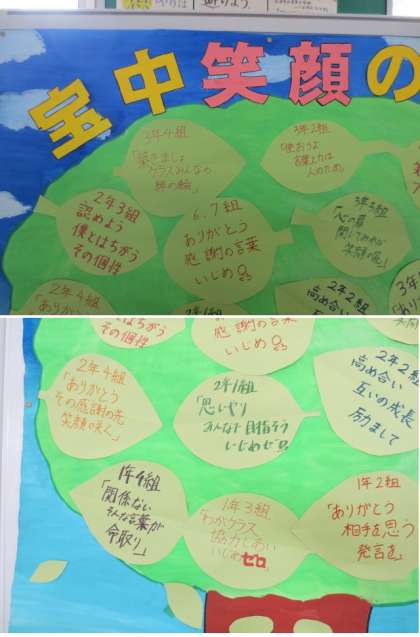 宝中笑顔の
3年4組
「築きましょ
クラスみんなの
絆の輪」
3年2組
「使おうよ
言葉の力は
人のため」
2年3組
認めよう
僕とはちがう
その個性
6.7組
ありがとう
感謝の言葉
いじめ0
3年3組
「心の扉
開いてみれば
笑顔の花」
2年4組
「ありがとう
2年1組
2年2組
高め合い
互いの
3年
「あり
ちがう
その個性
感謝の言葉
いじめ0
2年4組
「ありがとう
その感謝の先
笑顔咲く」
2年1組
「思いやり
みんなで目指そう
いじめゼロ」
2年2組
高め合い
互いの成長
励まして
1年4組
「関係ない
そんな言葉が
命取り」
1年3組
「わがクラス
協力しあい
いじめゼロ」
1年2組
「ありがとう
相手を思う
発言を」